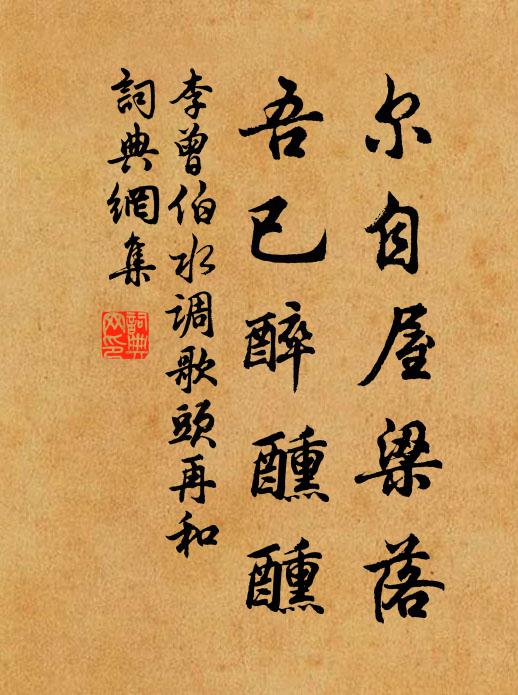 尔自屋梁落
吾已醉醺醺
李曾伯水调歌頭再和
詞典網集
詞典网印